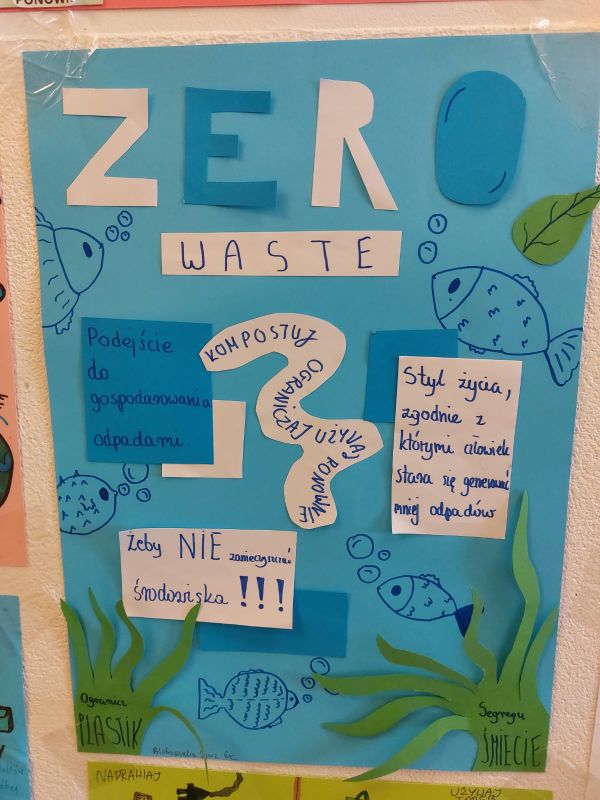 ZERO
WASTE
KOMPOSTUJ OGRANICZAJ UŻYWAJ PONOWNIE
Podejście
do
gospodarowania
odpadami.
Styl życia,
zgodnie z
którymi człowiek
stara się generować
mniej odpadów
Żeby NIE zanieczyszczać
środowiska !!!
Ogranicz
PLASTIK
Segreguj
ŚMIECIE
Aleksandra 6c
NAPRAWIAJ
UŻYWAJ